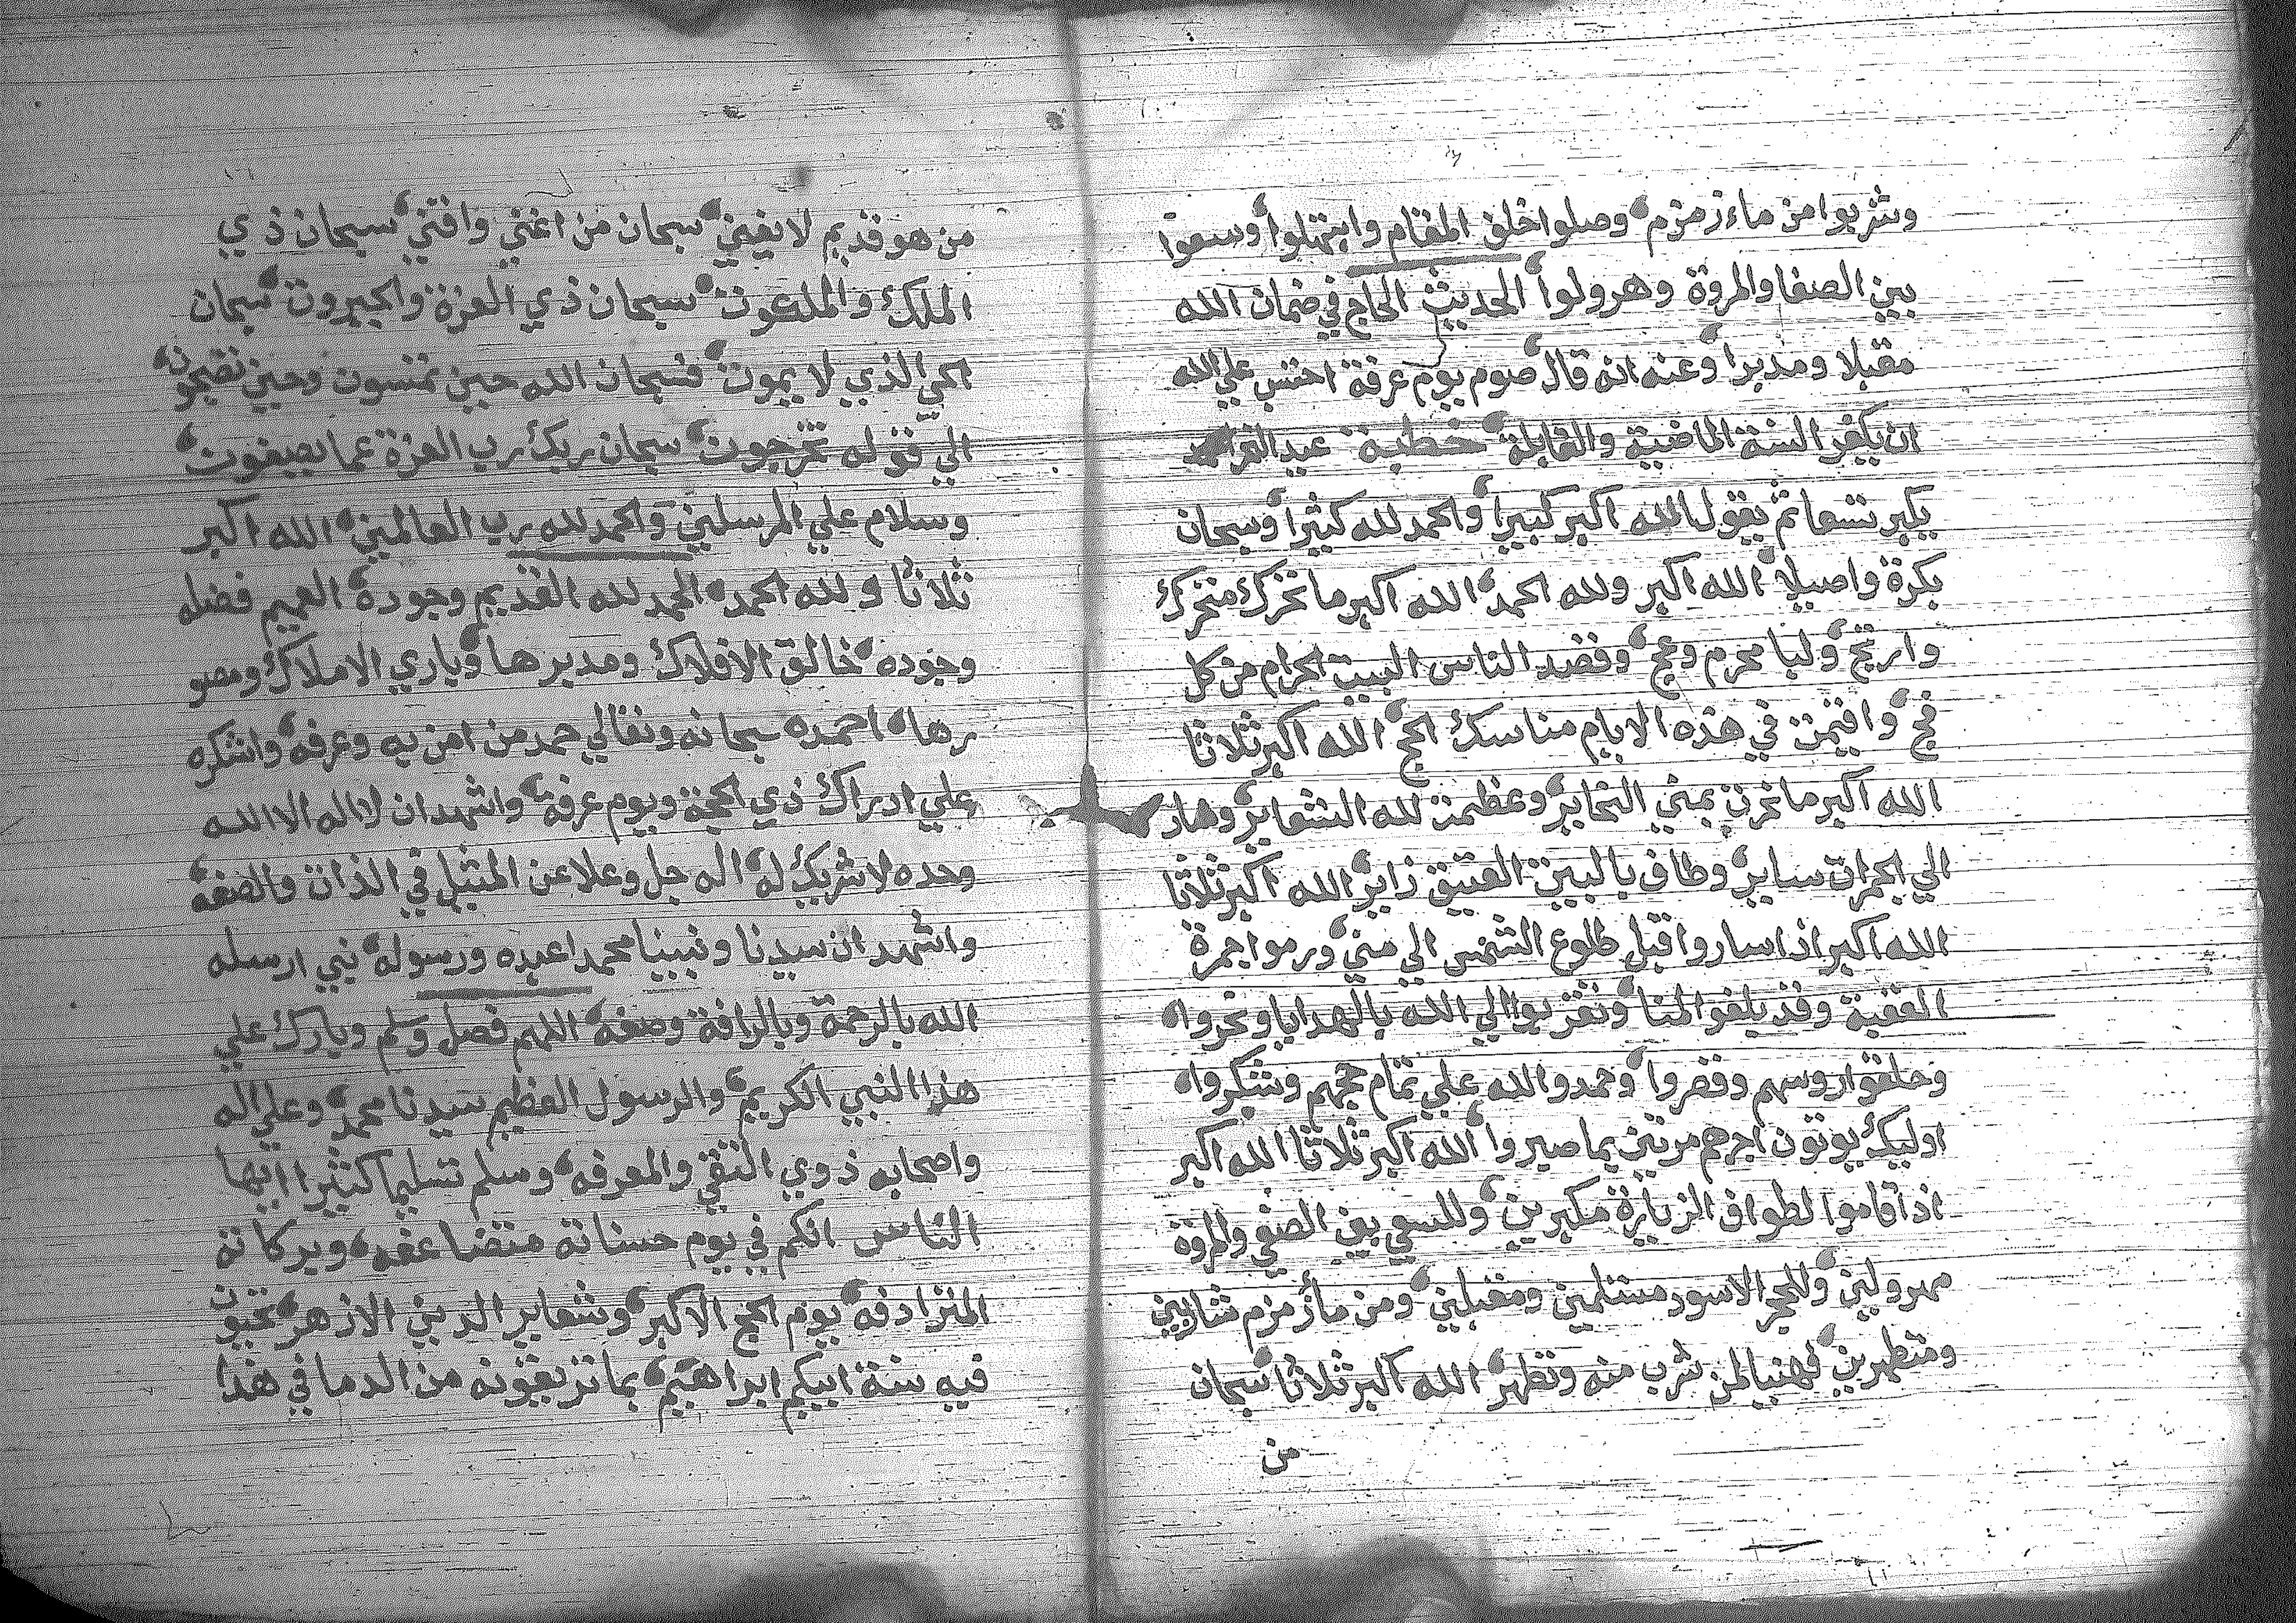 وشربوا من ماء زمزم وصلوا خلق المقام وابتهلوا وسعوا
بين الصفا والمروة وهرولوا الحديث الحاج في ضمان الله
مقبلا ومدبرا وعنه انه قال صوم يوم عرفة احتسب علي الله
ان يكفر السنة الماضية والقابلة خطبة عيد
يكبر تسعا ثم يقول الله اكبر كبيرا والحمد لله كثيرا وسبحان
بكرة واصيلا الله اكبر ولله الحمد الله اكبر ما تحرك متحرك
وارتج ولبا محرم وعج وقصد الناس البيت الحرام من كل
فج واقيمت في هذه الايام مناسك الحج الله اكبر ثلاثا
الله اكبر ما نحرت بمني النحاير وعظمت لله الشعاير وهار
الي الجمرات ساير وطاف بالبيت العتيق زاير الله اكبر ثلاثا
الله اكبر اذا ساروا قبل طلوع الشمس الي مني ورموا جمرة
العقبة وقد بلغو المنا وتقربوا الي الله بالهدايا ونحروا
وحلقوا روسهم وقصروا وحمدوا الله علي تمام حجهم وشكروا
اوليك يوتون اجرهم مرتين بما صبروا الله اكبر ثلاثا الله اكبر
اذ اقاموا لطواف الزيارة مكبرين وللسعي بين الصفي والمروة
مهرولين وللحجر الاسود مستلمين ومقبلين ومن ماء زمزم شاربين
ومتطهرين فهنيا لمن شرب منه وتطهر الله اكبر ثلاثا سبحان
من
من هو قديم لا يفني سبحان من اغني واقني سبحان ذي
الملك والملكوت سبحان ذي العزة والجبروت سبحان
الحي الذي لا يموت فسبحان الله حين تمسون وحين تصبحون
الي قوله تخرجون سبحان ربك رب العزة عما يصفون
وسلام علي المرسلين والحمد لله رب العالمين الله اكبر
ثلاثا ولله الحمد الحمد لله القديم وجوده العميم فضله
وجوده خالق الافلاك ومدبرها وباري الاملاك ومصو
رها احمده سبحانه وتعالي حمد من امن به وعرفه واشكره
علي ادراك ذي الحجة ويوم عرفة واشهد ان لا اله الا الله
وحده لا شريك له اله جل وعلا عن المثيل في الذات والصفه
واشهد ان سيدنا ونبينا محمدا عبده ورسوله نبي ارسله
الله بالرحمة وبالرافة وصفه اللهم فصل وسلم وبارك علي
هذا النبي الكريم والرسول العظيم سيدنا محمد وعلي اله
واصحابه ذوي التقي والمعرفه وسلم تسليما كثيرا ايها
الناس انكم في يوم حسناته متضاعفه وبركاته
المترادفه يوم الحج الاكبر وشعاير الدين الازهر تحيون
فيه سنة ابيكم ابراهيم بما تريقونه من الدما في هذا